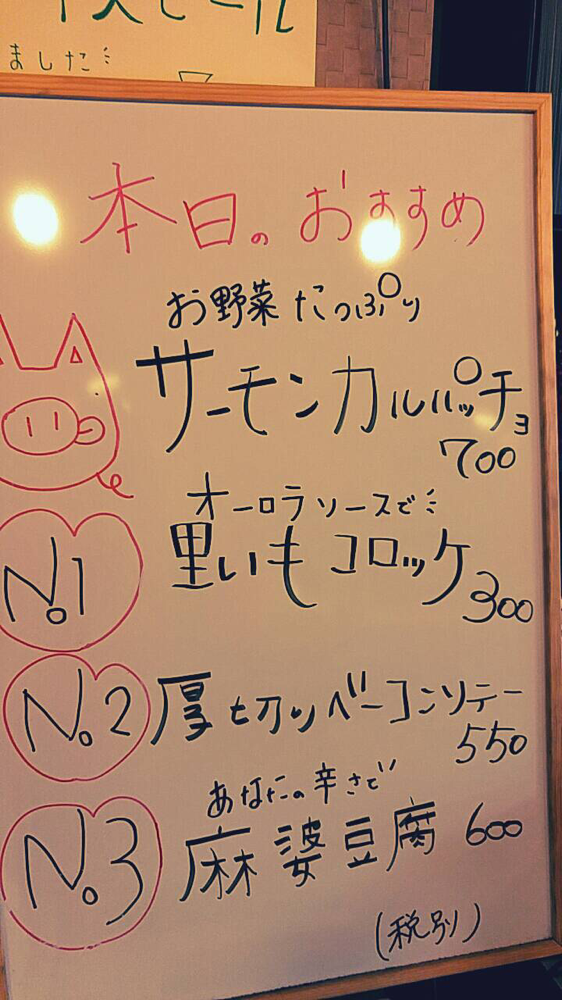 ました
本日のおすすめ
お野菜たっぷり
サーモンカルパッチョ
700
オーロラソースで
里いもコロッケ
300
No.1
No.2
厚切りベーコンソテー
550
あなたの辛さで
No.3
麻婆豆腐 600
(税別)